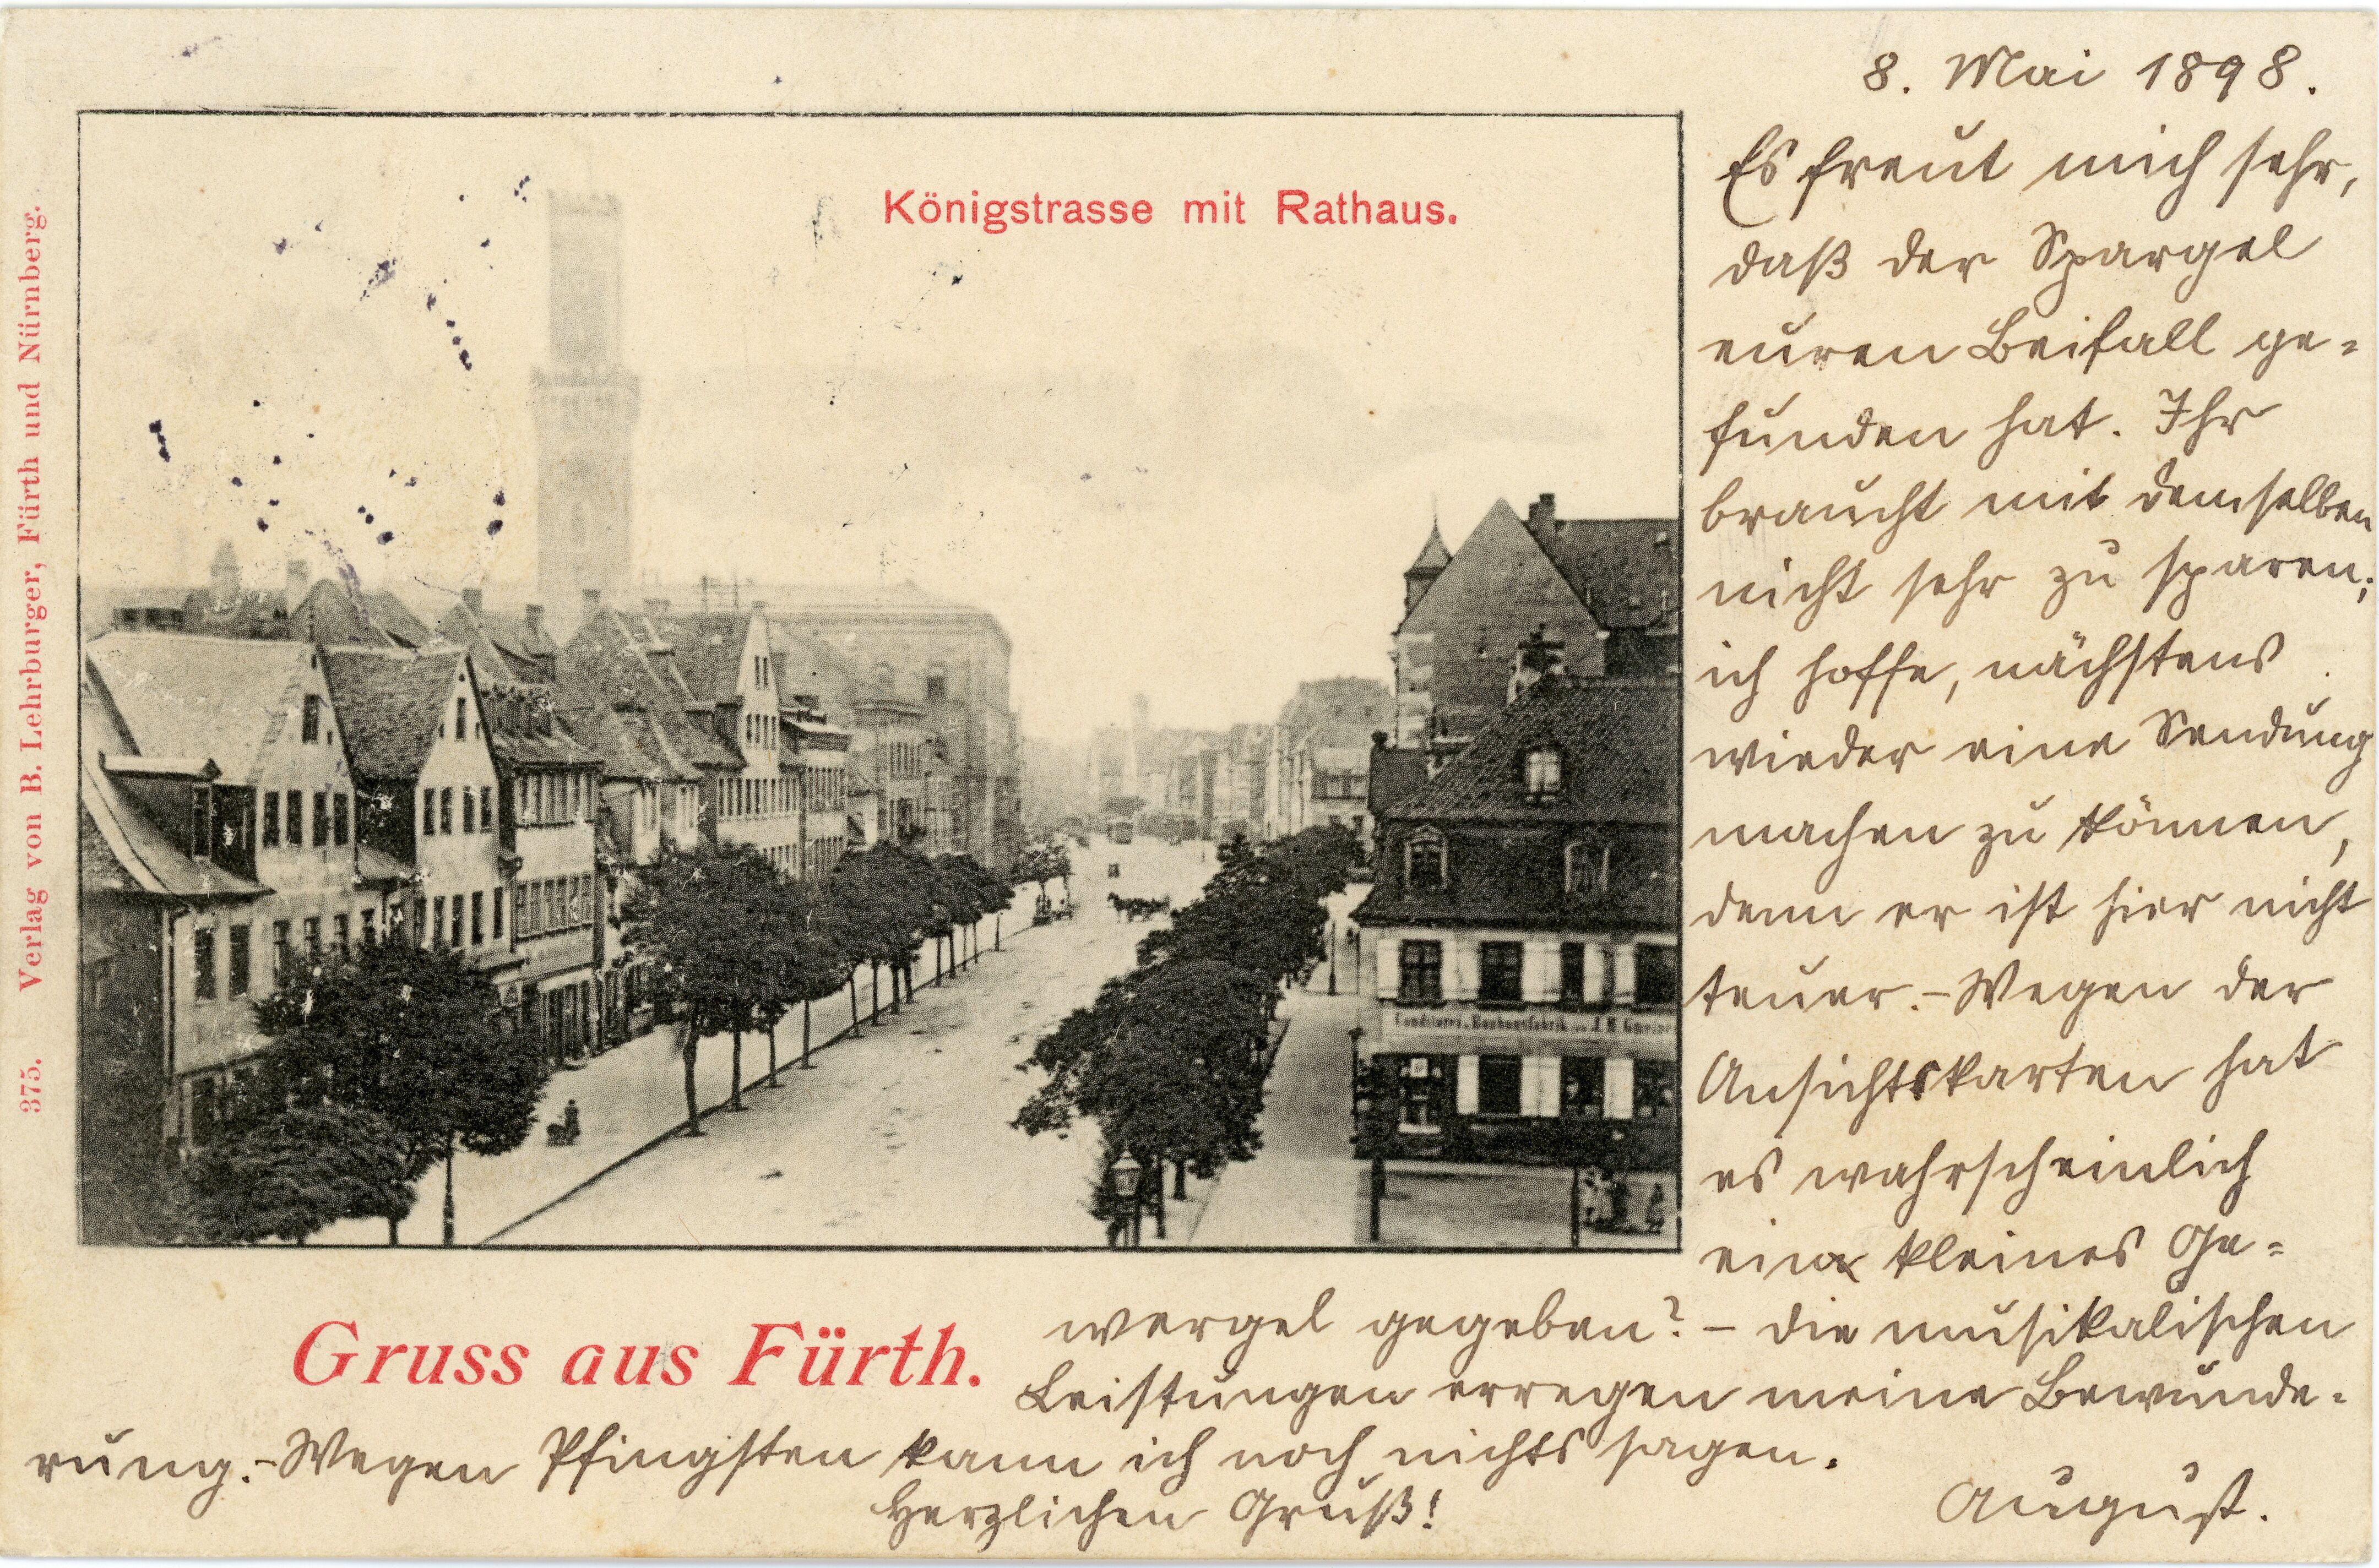 8. Mai 1898.
Königstrasse mit Rathaus.
Es freut mich sehr,
daß der Spargel
euren Beifall ge-
funden hat. Ihr
braucht mit demselben
nicht sehr zu sparen;
ich hoffe, nächstens
wieder eine Sendung
machen zu können,
denn er ist hier nicht
teuer. – Wegen der
Ansichtskarten hat
es wahrscheinlich
ein kleines Ge-
wergel gegeben? – die musikalischen
Leistungen erregen meine Bewunde-
rung. – Wegen Pfingsten kann ich noch nichts sagen.
Herzlichen Gruß!
August.
Gruss aus Fürth.
375. Verlag von B. Lehrburger, Fürth und Nürnberg.